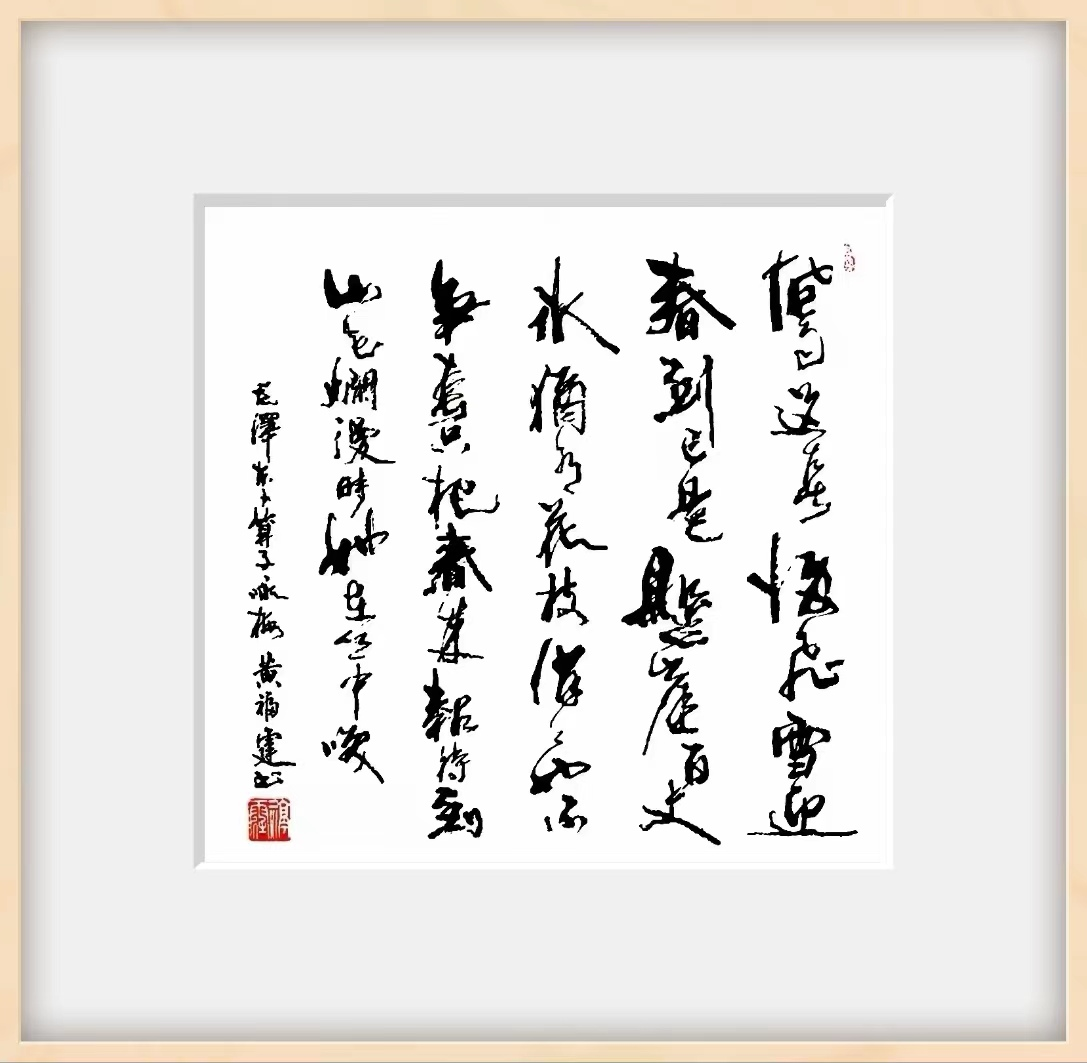 風雨送春歸飛雪迎
春到已是懸崖百丈
冰猶有花枝俏〻也不
爭春只把春來報待到
山花爛漫時她在丛中笑
毛澤东卜算子咏梅 黄福霆书